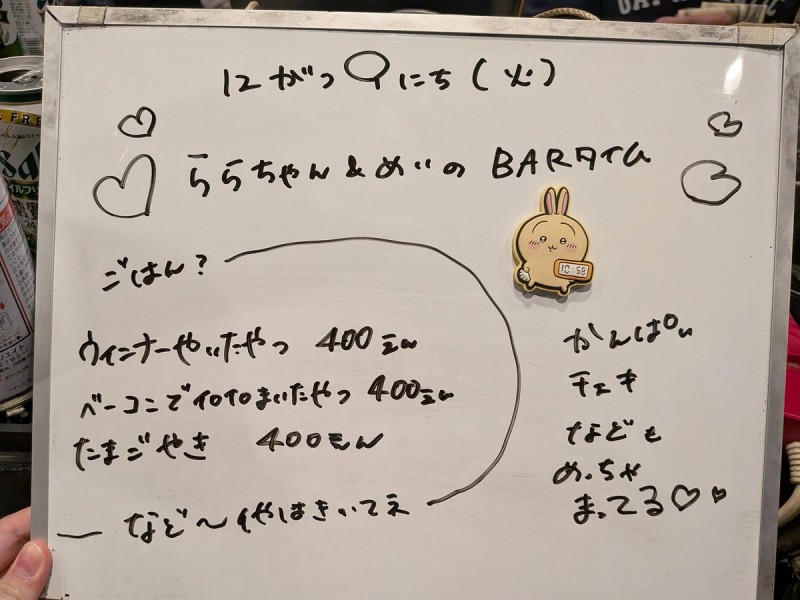 12がつ9にち(火)
ららちゃん&めいの BARタイム
ごはん?
10:58
ウィンナーやいたやつ 400えん
ベーコンでイロイロまいたやつ 400えん
たまごやき 400えん
など〜 はきいてえ
かんぱい
チェキ
なども
めっちゃ
まってる♡♡